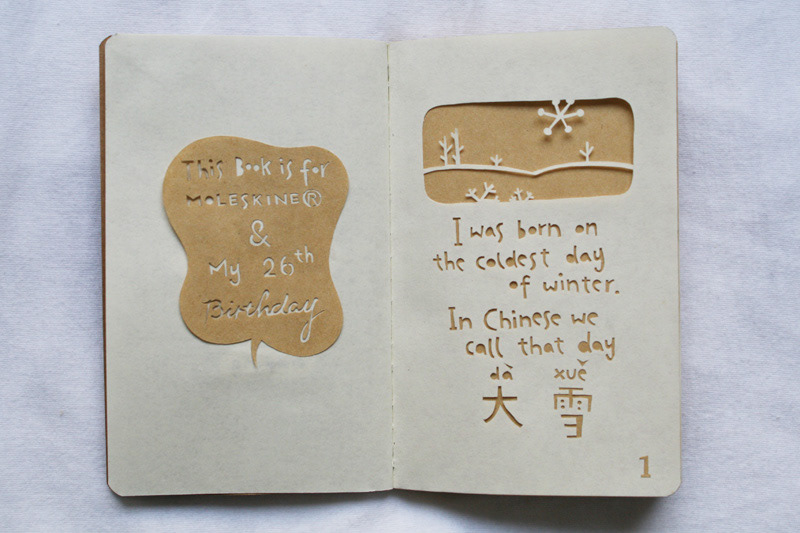 This Book is for
MOLESKINE®
&
My 26th
Birthday
I was born on
the coldest day
of winter.
In Chinese we
call that day
dà xuě
大雪
1